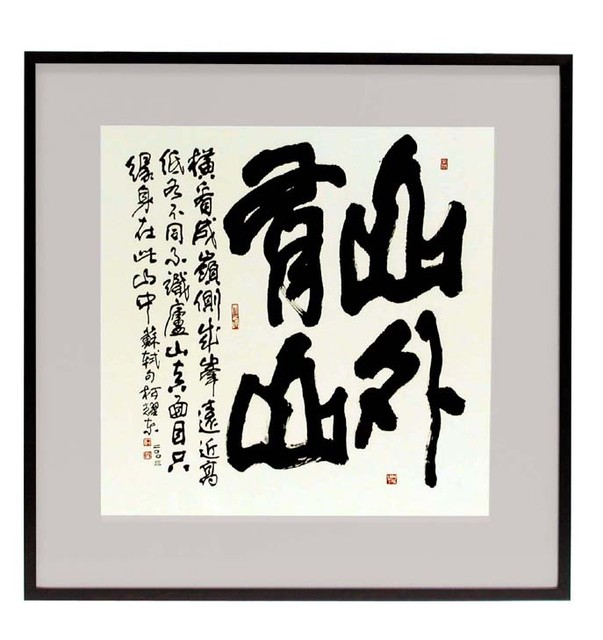 山外
有山
橫看成嶺側成峯遠近高
低各不同不識廬山真面目只
緣身在此山中 蘇軾句 柯耀東